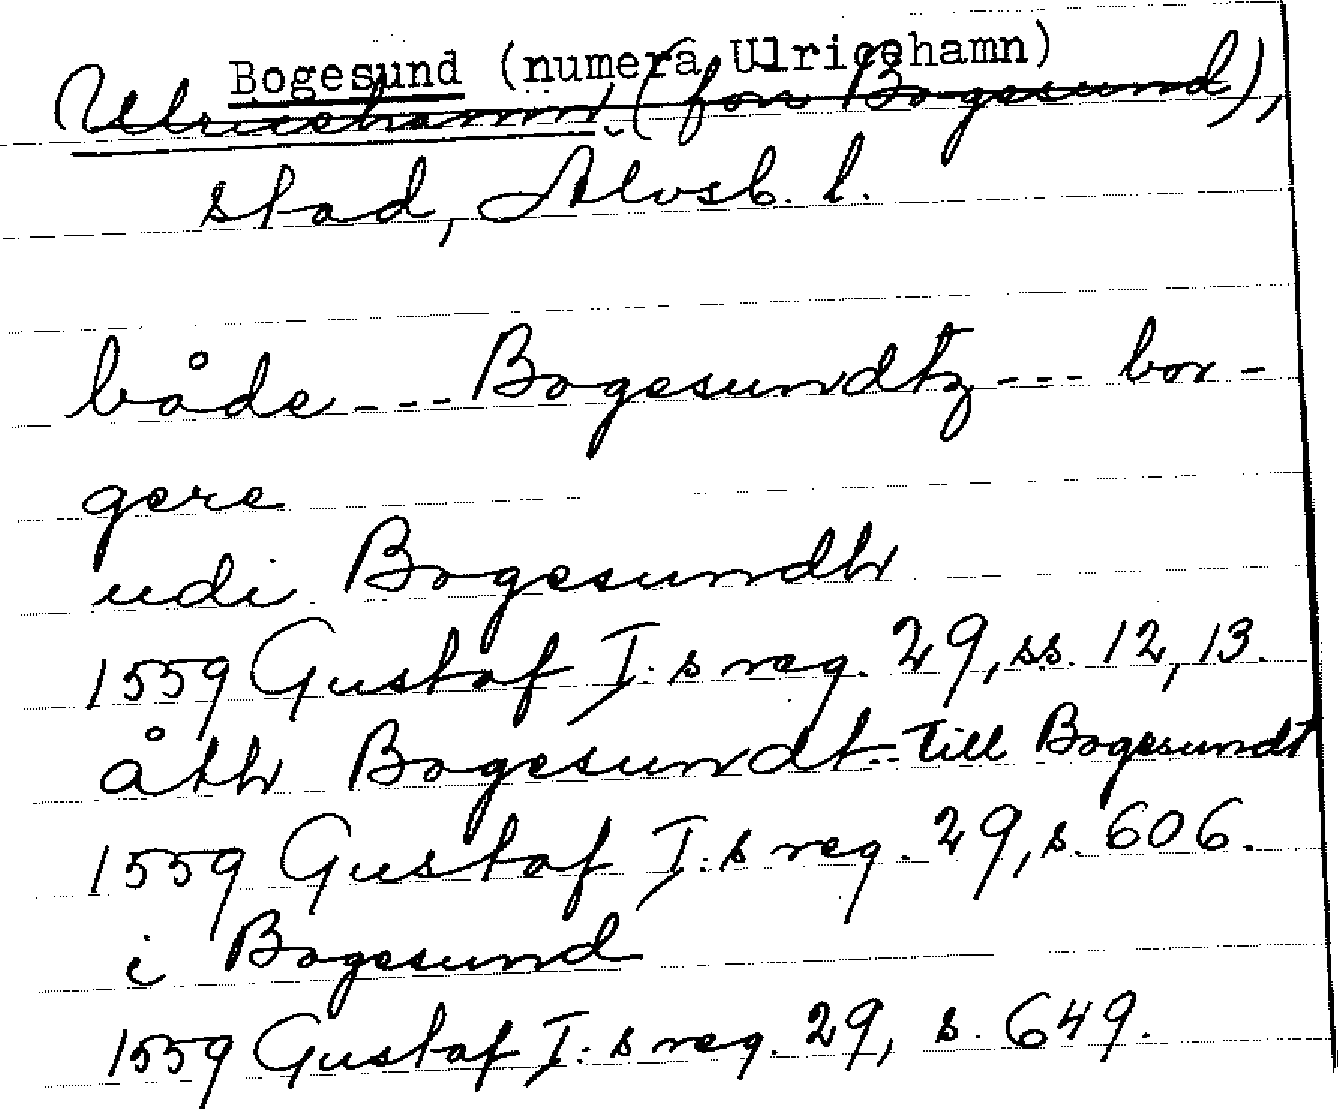 Bogesund (numera Ulricehamn)
Ulricehamn (förr Bogesund),
stad, Älvsb. l.
både --- Bogesundtz --- bor-
gere
udi Bogesundh
1559 Gustaf I:s reg. 29, ss. 12, 13.
åth Bogesundt - till Bogesundt
1559 Gustaf I:s reg. 29, s. 606.
i Bogesund
1559 Gustaf I:s reg. 29, s. 649.